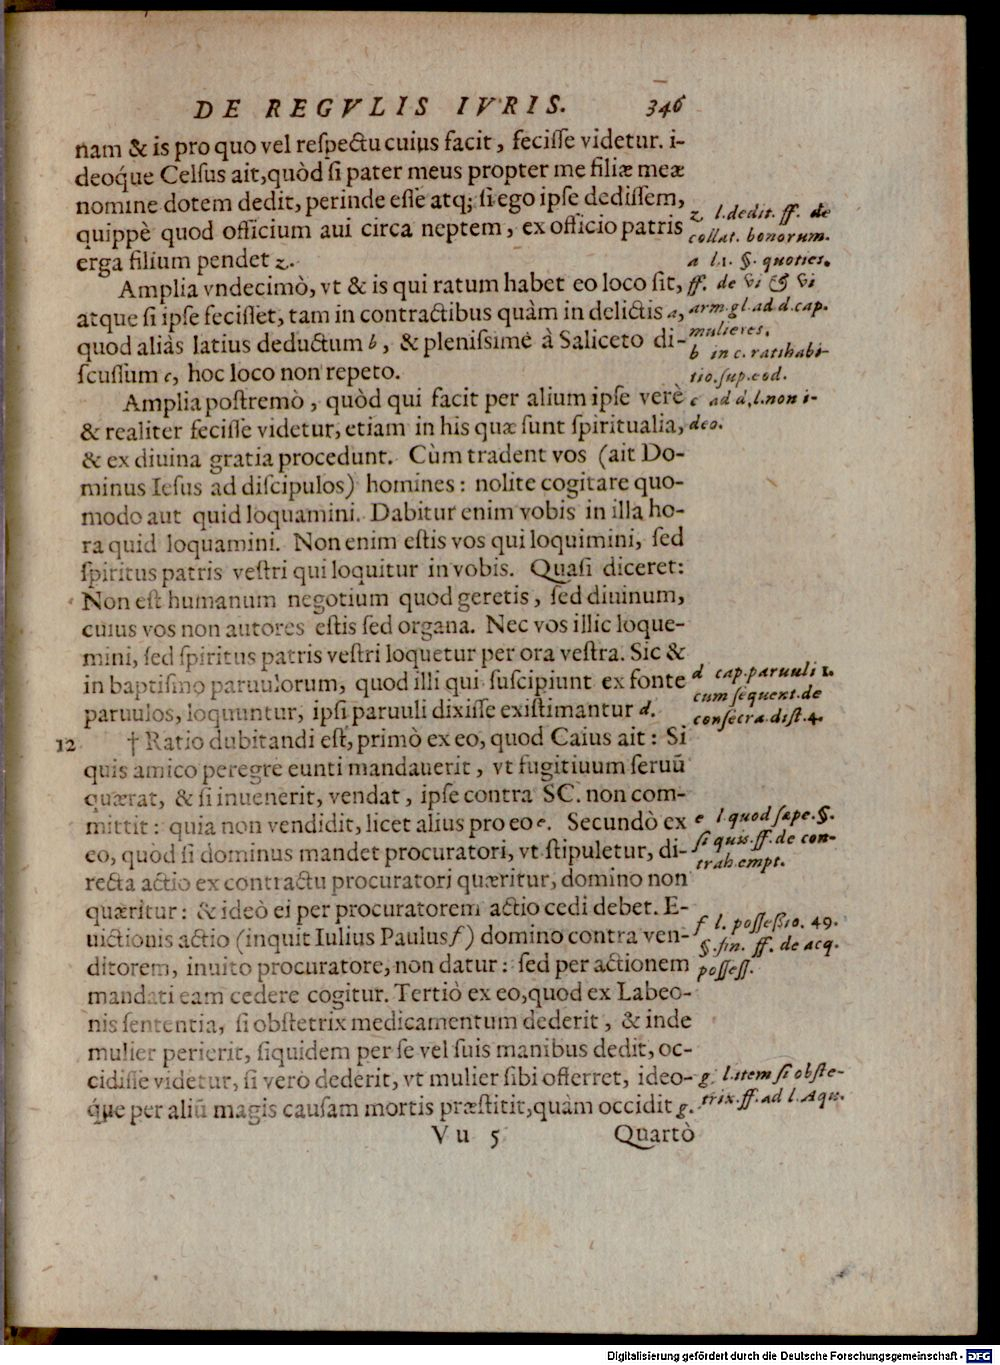 DE REGVLIS IVRIS. 346
nam & is pro quo vel reſpectu cuius facit, feciſſe videtur. i-
deoq́ue Celſus ait, quòd ſi pater meus propter me filiæ meæ
nomine dotem dedit, perinde eſſe atq; ſi ego ipſe dediſſem,
quippè quod officium aui circa neptem, ex officio patris
erga filium pendet z.
Amplia vndecimò, vt & is qui ratum habet eo loco ſit,
atque ſi ipſe feciſſet, tam in contractibus quàm in delictis a,
quod aliàs latius deductum b, & pleniſsimè à Saliceto di-
ſcuſſum c, hoc loco non repeto.
Amplia poſtremò, quòd qui facit per alium ipſe verè
& realiter feciſſe videtur, etiam in his quæ ſunt ſpiritualia,
& ex diuina gratia procedunt. Cùm tradent vos (ait Do-
minus Ieſus ad diſcipulos) homines: nolite cogitare quo-
modo aut quid loquamini. Dabitur enim vobis in illa ho-
ra quid loquamini. Non enim eſtis vos qui loquimini, ſed
ſpiritus patris veſtri qui loquitur in vobis. Quaſi diceret:
Non eſt humanum negotium quod geretis, ſed diuinum,
cuius vos non autores eſtis ſed organa. Nec vos illic loque-
mini, ſed ſpiritus patris veſtri loquetur per ora veſtra. Sic &
in baptiſmo paruulorum, quod illi qui ſuſcipiunt ex fonte
paruulos, loquuntur, ipſi paruuli dixiſſe exiſtimantur d.
12 † Ratio dubitandi eſt, primò ex eo, quod Caius ait: Si
quis amico peregre eunti mandauerit, vt fugitiuum ſeruū
quærat, & ſi inuenerit, vendat, ipſe contra SC. non com-
mittit: quia non vendidit, licet alius pro eo e. Secundò ex
eo, quòd ſi dominus mandet procuratori, vt ſtipuletur, di-
recta actio ex contractu procuratori quæritur, domino non
quæritur: & ideò ei per procuratorem actio cedi debet. E-
uictionis actio (inquit Iulius Paulus f) domino contra ven-
ditorem, inuito procuratore, non datur: ſed per actionem
mandati eam cedere cogitur. Tertiò ex eo, quod ex Labeo-
nis ſententia, ſi obſtetrix medicamentum dederit, & inde
mulier perierit, ſiquidem per ſe vel ſuis manibus dedit, oc-
cidiſſe videtur, ſi verò dederit, vt mulier ſibi offerret, ideo-
q́ue per aliū magis cauſam mortis præſtitit, quàm occidit g.
Vu 5 Quartò
z l. dedit. ff. de
collat. bonorum.
a l.1. §. quoties.
ff. de vi & vi
arm. gl. ad d. cap.
mulieres.
b in c. ratihabi-
tio. ſup. eod.
c ad d. l. non i-
deo.
d cap. paruuli 1.
cum ſequent. de
conſecra. diſt. 4.
e l. quod ſæpe. §.
ſi quis. ff. de con-
trah. empt.
f l. poſſeſsio. 49.
§. fin. ff. de acq.
poſſeſſ.
g l. item ſi obſte-
trix. ff. ad l. Aqu.
Digitalisierung gefördert durch die Deutsche Forschungsgemeinschaft - DFG